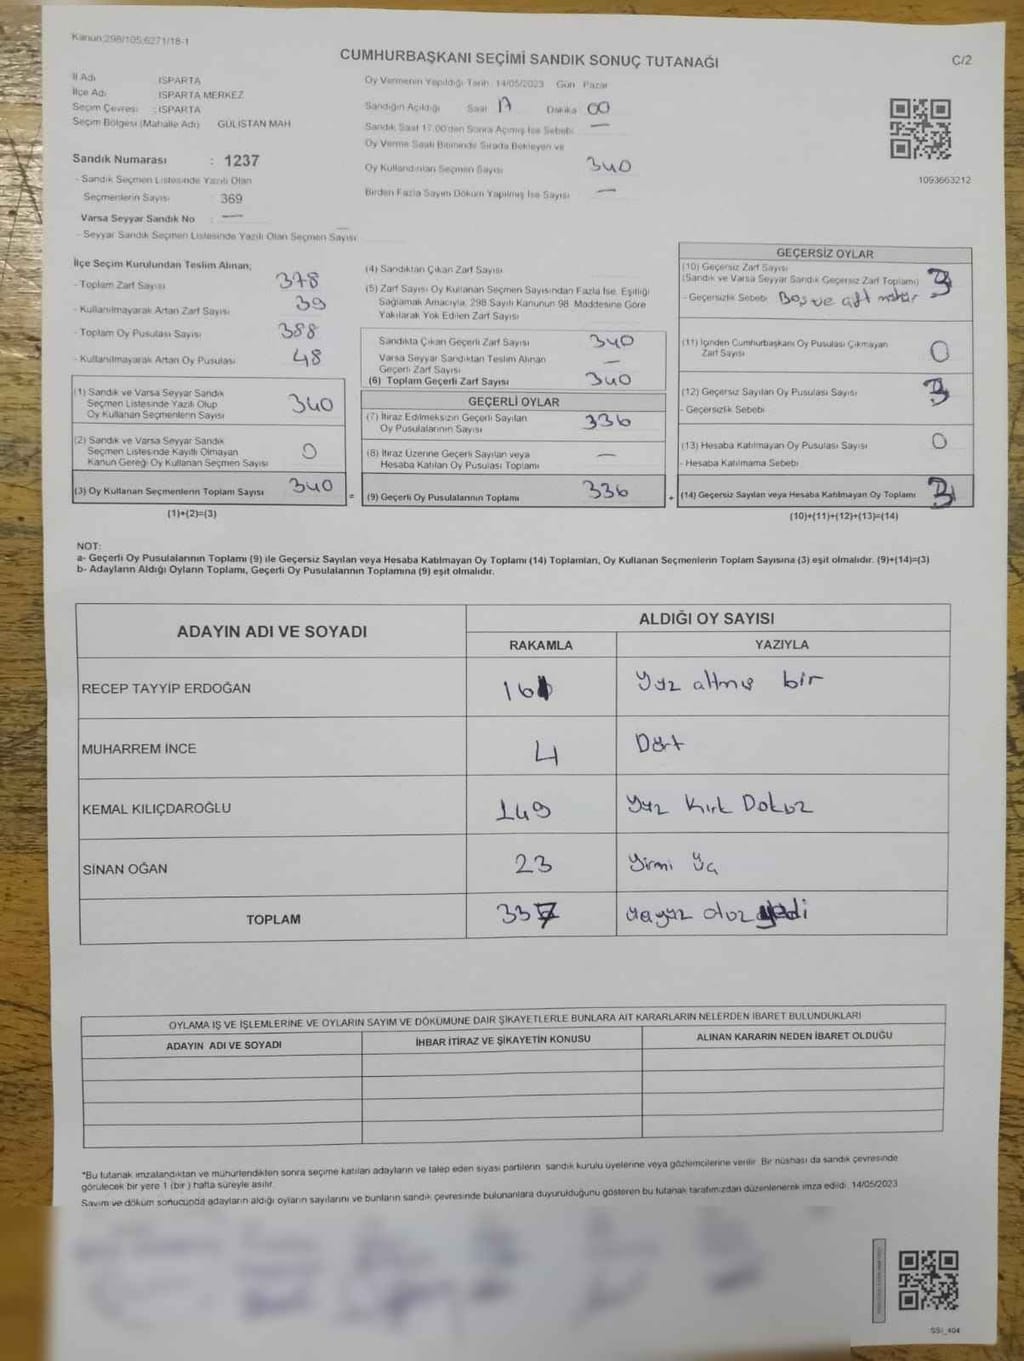 Kanun:298/105,6271/18-1
CUMHURBAŞKANI SEÇİMİ SANDIK SONUÇ TUTANAĞI
C/2
İl Adı ISPARTA
İlçe Adı ISPARTA MERKEZ
Seçim Çevresi : ISPARTA
Seçim Bölgesi (Mahalle Adı) GÜLİSTAN MAH
Sandık Numarası : 1237
- Sandık Seçmen Listesinde Yazılı Olan
Seçmenlerin Sayısı 369
Varsa Seyyar Sandık No : —
- Seyyar Sandık Seçmen Listesinde Yazılı Olan Seçmen Sayısı
Oy Vermenin Yapıldığı Tarih 14/05/2023 Gün Pazar
Sandığın Açıldığı Saat 17 Dakika 00
Sandık Saat 17.00'den Sonra Açılmış İse Sebebi —
Oy Verme Saati Bitiminde Sırada Bekleyen ve
Oy Kullandırılan Seçmen Sayısı 340
Birden Fazla Sayım Döküm Yapılmış İse Sayısı —
1093663212
İlçe Seçim Kurulundan Teslim Alınan;
- Toplam Zarf Sayısı 378
- Kullanılmayarak Artan Zarf Sayısı 39
- Toplam Oy Pusulası Sayısı 388
- Kullanılmayarak Artan Oy Pusulası 48
(1) Sandık ve Varsa Seyyar Sandık
Seçmen Listesinde Yazılı Olup
Oy Kullanan Seçmenlerin Sayısı 340
(2) Sandık ve Varsa Seyyar Sandık
Seçmen Listesinde Kayıtlı Olmayan
Kanun Gereği Oy Kullanan Seçmen Sayısı 0
(3) Oy Kullanan Seçmenlerin Toplam Sayısı 340
(1)+(2)=(3)
(4) Sandıktan Çıkan Zarf Sayısı
(5) Zarf Sayısı Oy Kullanan Seçmen Sayısından Fazla İse, Eşitliği
Sağlamak Amacıyla, 298 Sayılı Kanunun 98. Maddesine Göre
Yakılarak Yok Edilen Zarf Sayısı
Sandıkta Çıkan Geçerli Zarf Sayısı 340
Varsa Seyyar Sandıktan Teslim Alınan
Geçerli Zarf Sayısı —
(6) Toplam Geçerli Zarf Sayısı 340
GEÇERLİ OYLAR
(7) İtiraz Edilmeksizin Geçerli Sayılan
Oy Pusulalarının Sayısı 336
(8) İtiraz Üzerine Geçerli Sayılan veya
Hesaba Katılan Oy Pusulası Toplamı —
= (9) Geçerli Oy Pusulalarının Toplamı 336
GEÇERSİZ OYLAR
(10) Geçersiz Zarf Sayısı
(Sandık ve Varsa Seyyar Sandık Geçersiz Zarf Toplamı) 3
- Geçersizlik Sebebi Boş ve
(11) İçinden Cumhurbaşkanı Oy Pusulası Çıkmayan
Zarf Sayısı 0
(12) Geçersiz Sayılan Oy Pusulası Sayısı 3
- Geçersizlik Sebebi
(13) Hesaba Katılmayan Oy Pusulası Sayısı 0
- Hesaba Katılmama Sebebi
+ (14) Geçersiz Sayılan veya Hesaba Katılmayan Oy Toplamı 3
(10)+(11)+(12)+(13)=(14)
NOT:
a- Geçerli Oy Pusulalarının Toplamı (9) ile Geçersiz Sayılan veya Hesaba Katılmayan Oy Toplamı (14) Toplamları, Oy Kullanan Seçmenlerin Toplam Sayısına (3) eşit olmalıdır. (9)+(14)=(3)
b- Adayların Aldığı Oyların Toplamı, Geçerli Oy Pusulalarının Toplamına (9) eşit olmalıdır.
ADAYIN ADI VE SOYADI
ALDIĞI OY SAYISI
RAKAMLA YAZIYLA
RECEP TAYYİP ERDOĞAN 161 Yüz altmış bir
MUHARREM İNCE 4 Dört
KEMAL KILIÇDAROĞLU 149 Yüz Kırk Dokuz
SİNAN OĞAN 23 Yirmi Üç
TOPLAM 337 üçyüz otuz yedi
OYLAMA İŞ VE İŞLEMLERİNE VE OYLARIN SAYIM VE DÖKÜMÜNE DAİR ŞİKAYETLERLE BUNLARA AİT KARARLARIN NELERDEN İBARET BULUNDUKLARI
ADAYIN ADI VE SOYADI İHBAR İTİRAZ VE ŞİKAYETİN KONUSU ALINAN KARARIN NEDEN İBARET OLDUĞU
*Bu tutanak imzalandıktan ve mühürlendikten sonra seçime katılan adayların ve talep eden siyasi partilerin sandık kurulu üyelerine veya gözlemcilerine verilir. Bir nüshası da sandık çevresinde
görülecek bir yere 1 (bir) hafta süreyle asılır.
Sayım ve döküm sonucunda adayların aldığı oyların sayılarını ve bunların sandık çevresinde bulunanlara duyurulduğunu gösteren bu tutanak tarafımızdan düzenlenerek imza edildi. 14/05/2023